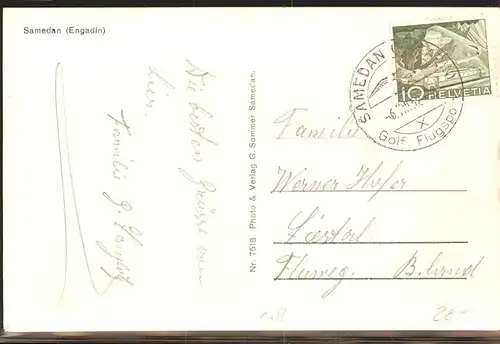 Samedan (Engadin)
Die besten Grüsse von
hier.
Familie G.
Nr. 7518 Photo & Verlag G. Sommer Samedan.
SAMEDAN
Golf Flugspo
10 HELVETIA
Familie
Werner Hofer
Liestal
Flueweg.